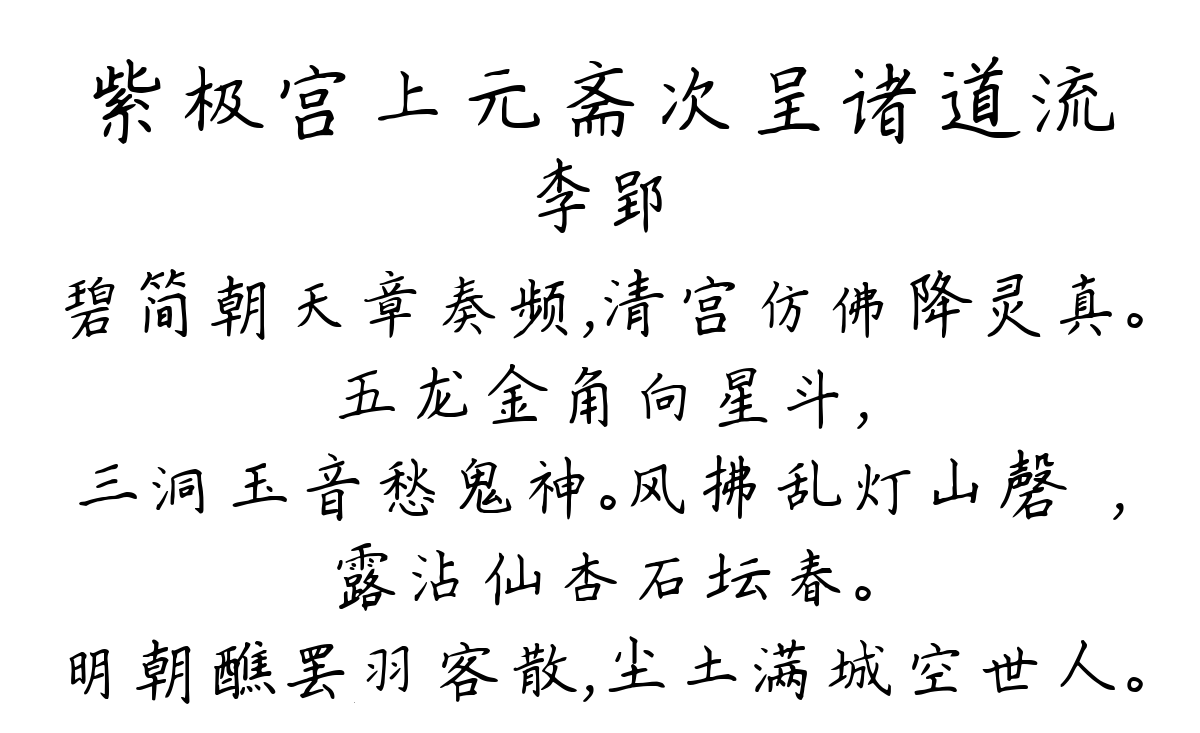 紫极宫上元斋次呈诸道流
李郢
碧简朝天章奏频,清宫仿佛降灵真。
五龙金角向星斗,
三洞玉音愁鬼神。风拂乱灯山磬 ,
露沾仙杏石坛春。
明朝醮罢羽客散,尘土满城空世人。